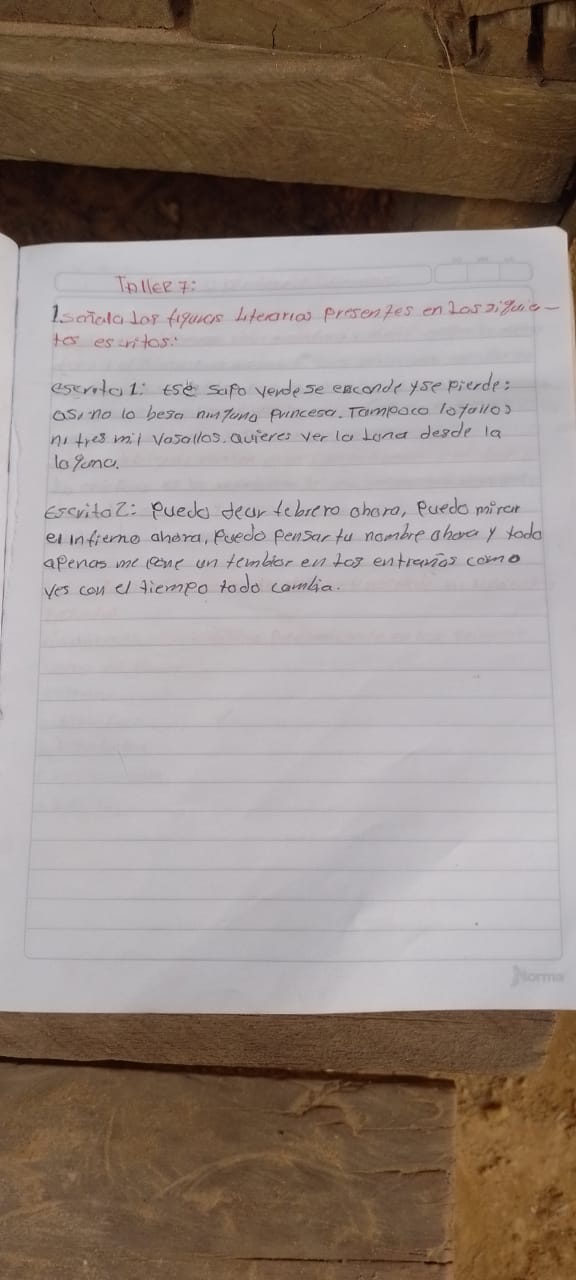 Taller 7:
1. señala las figuras Literarias presentes en Los siguie-
tes escritos:
escrito 1: Ese sapo verde se esconde y se pierde;
asi no lo besa ninguna princesa. Tampoco
ni tres mil vasallos. Quieres ver la Luna desde la
laguna.
Escrito 2: Puedo febrero ahora, Puedo mirar
el infierno ahora, Puedo pensar tu nombre ahora y todo
apenas me pone un temblor en las entrañas como
ves con el tiempo todo cambia.
Norma